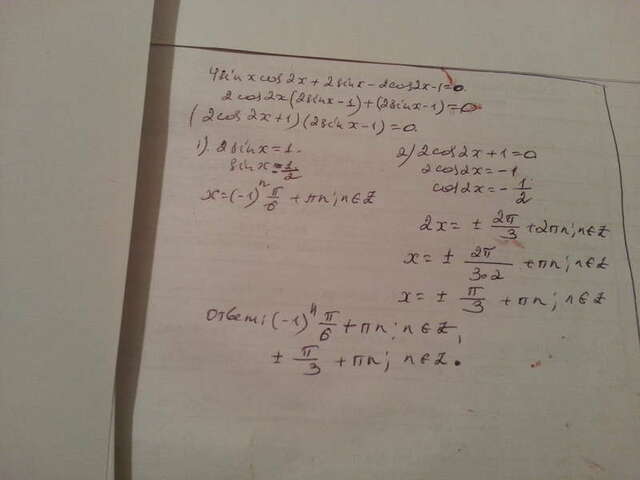 4sin x cos2x + 2sinx - 2cos2x - 1 = 0.
2cos2x(2sinx-1)+(2sinx-1)=0
(2cos2x+1)(2sinx-1)=0.
1). 2sinx=1.
sinx=1/2
x=(-1)^n π/6 + πn; n∈Z
2) 2cos2x+1=0
2cos2x=-1
cos2x=-1/2
2x= ± 2π/3 +2πn; n∈Z
x= ± 2π/3·2 +πn; n∈Z
x= ± π/3 +πn; n∈Z
Ответ: (-1)^n π/6 + πn; n∈Z,
± π/3 + πn; n∈Z.